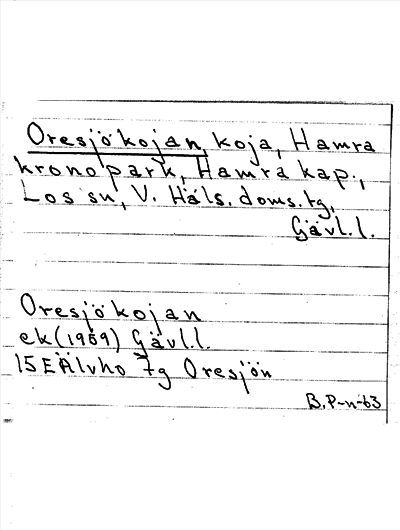 Oresjökojan, koja, Hamra
kronopark, Hamra kap.,
Los sn, V. Häls. doms.tg,
Gävl.l.
Oresjökojan
ek (1959) Gävl.l.
15E Älvho 7g Oresjön
B.P-n-63